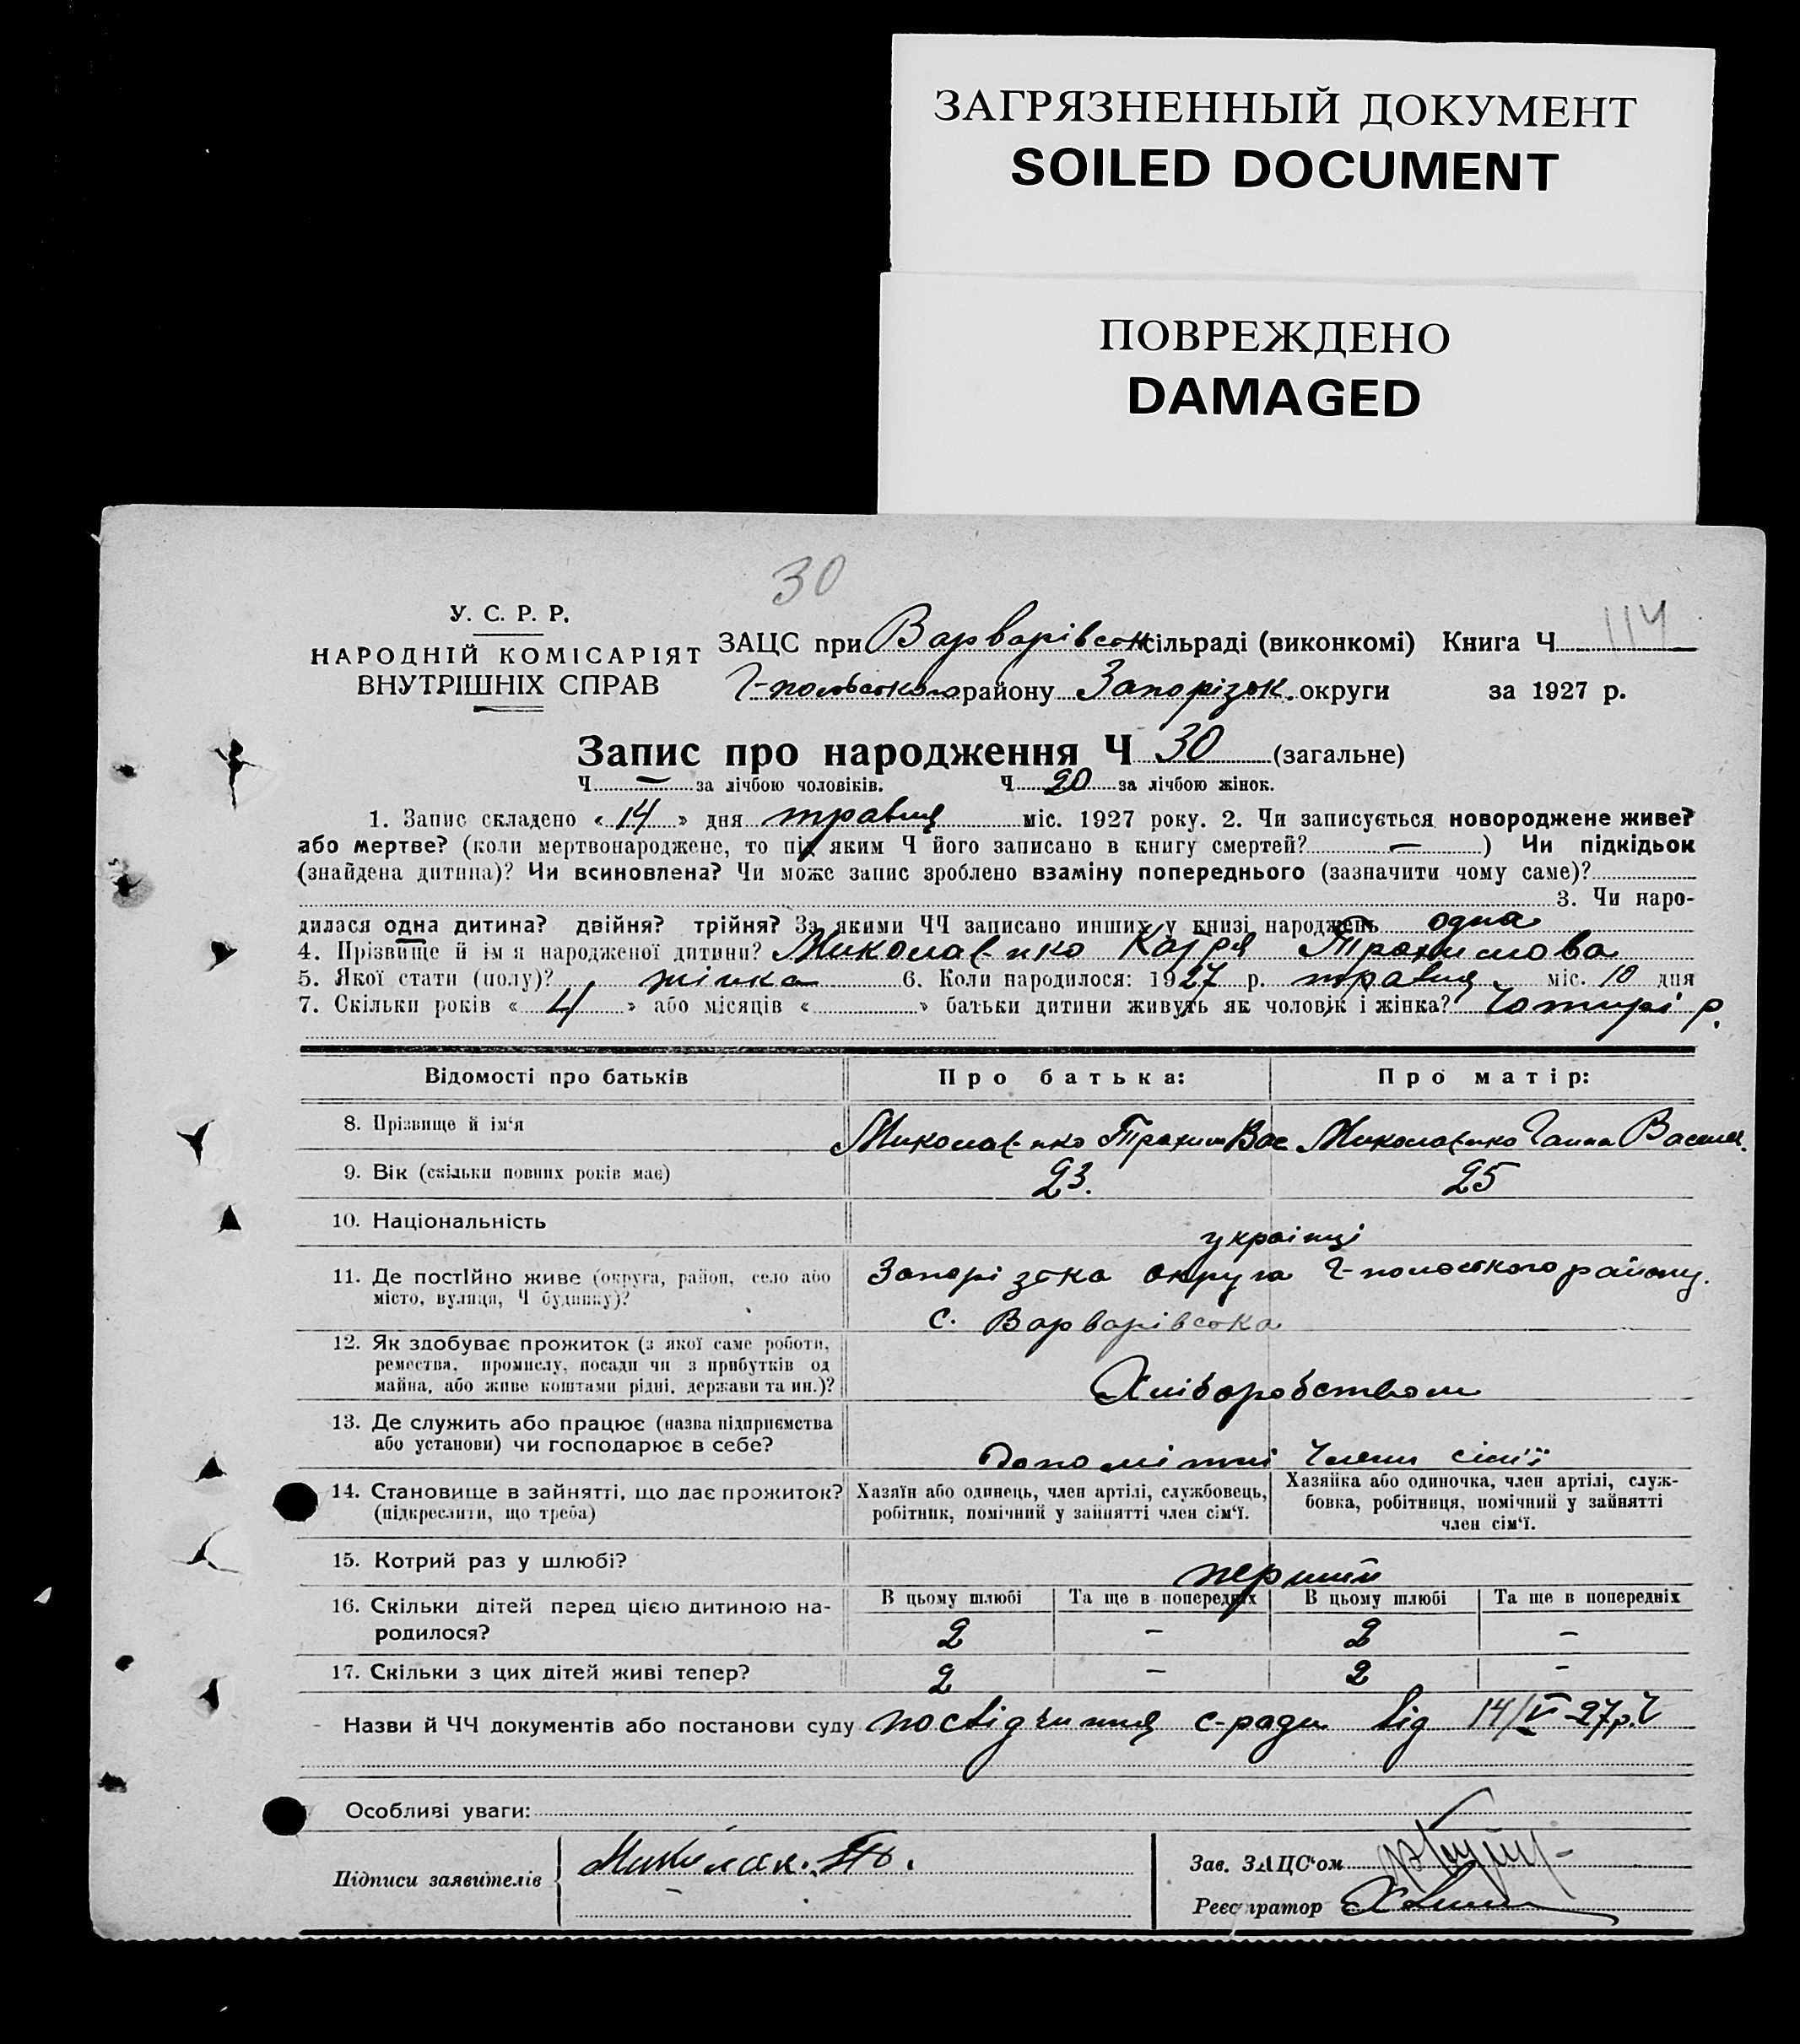 ЗАГРЯЗНЕННЫЙ ДОКУМЕНТ
SOILED DOCUMENT
ПОВРЕЖДЕНО
DAMAGED
30
У. С. Р. Р.
НАРОДНІЙ КОМІСАРІЯТ
ВНУТРІШНІХ СПРАВ
ЗАЦС при Варварівськ сільраді (виконкомі) Книга Ч 114
Г-польського району Запорізьк. округи за 1927 р.
Запис про народження Ч 30 (загальне)
Ч — за лічбою чоловіків. Ч 20 за лічбою жінок.
1. Запис складено « 14 » дня травня міс. 1927 року. 2. Чи записується новороджене живе?
або мертве? (коли мертвонароджене, то під яким Ч його записано в книгу смертей? — ) Чи підкідьок
(знайдена дитина)? Чи всиновлена? Чи може запис зроблено взаміну попереднього (зазначити чому саме)?
3. Чи наро-
дилася одна дитина? двійня? трійня? За якими ЧЧ записано инших у книзі народжень одна
4. Прізвище й ім я народженої дитини? Миколаєнко Катря Трохимова
5. Якої стати (полу)? жінка 6. Коли народилося: 1927 р. травня міс. 10 дня
7. Скільки років « 4 » або місяців « » батьки дитини живуть як чоловік і жінка? Чотирі р.
Відомості про батьків Про батька: Про матір:
8. Прізвище й ім'я Миколаєнко Трохим Вас Миколаєнко Ганна Васил.
9. Вік (скільки повних років має) 23. 25
10. Національність українці
11. Де постійно живе (округа, район, село або Запорізька округа Г-польского району.
місто, вулиця, Ч будинку)? с. Варварівська
12. Як здобуває прожиток (з якої саме роботи,
ремества, промислу, посади чи з прибутків од
майна, або живе коштами рідні, держави та ин.)? Хліборобством
13. Де служить або працює (назва підприємства
або установи) чи господарює в себе? Допомітні члени сім'ї
14. Становище в зайнятті, що дає прожиток? Хазяїн або одинець, член артілі, службовець, Хазяйка або одиночка, член артілі, служ-
(підкреслити, що треба) робітник, помічний у зайнятті член сім'ї. бовка, робітниця, помічний у зайнятті
член сім'ї.
15. Котрий раз у шлюбі? перший
16. Скільки дітей перед цією дитиною на- В цьому шлюбі Та ще в попередніх В цьому шлюбі Та ще в попередніх
родилося? 2 — 2 —
17. Скільки з цих дітей живі тепер? 2 — 2 -
Назви й ЧЧ документів або постанови суду посвідчиння с-ради від 14/VI-27р.
Особливі уваги:
Підписи заявителів Миколак. Зав. ЗАЦС'ом
Реєстратор